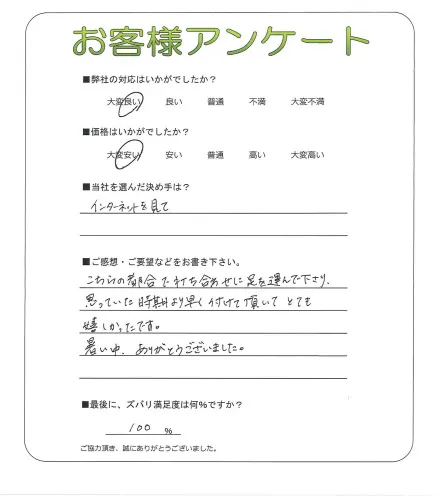 お客様アンケート
■弊社の対応はいかがでしたか？
大変良い 良い 普通 不満 大変不満
■価格はいかがでしたか？
大変安い 安い 普通 高い 大変高い
■当社を選んだ決め手は？
インターネットを見て
■ご感想・ご要望などをお書き下さい。
こちらの都合で打ち合わせに足を運んで下さり、
思っていた時期より早く付けて頂いてとても
嬉しかったです。
暑い中、ありがとうございました。
■最後に、ズバリ満足度は何％ですか？
100 ％
ご協力頂き、誠にありがとうございました。